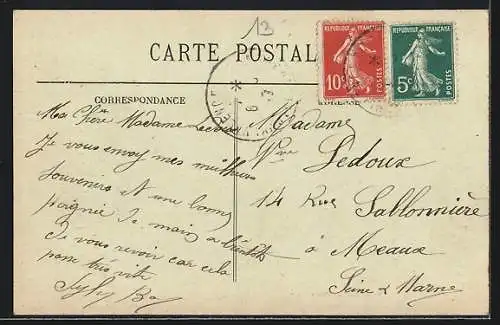 13
CARTE POSTALE
REPUBLIQUE FRANÇAISE
10c
POSTES
REPUBLIQUE FRANÇAISE
5c
POSTES
CORRESPONDANCE
ADRESSE
Ma Chère Madame
Je vous envoy mes meilleurs
souvenirs et une bonne
poignée de main a bientôt
de vous revoir car cela
passe très vite
Madame
Vve Ledoux
14 Rue Sablonnière
à Meaux
Seine & Marne